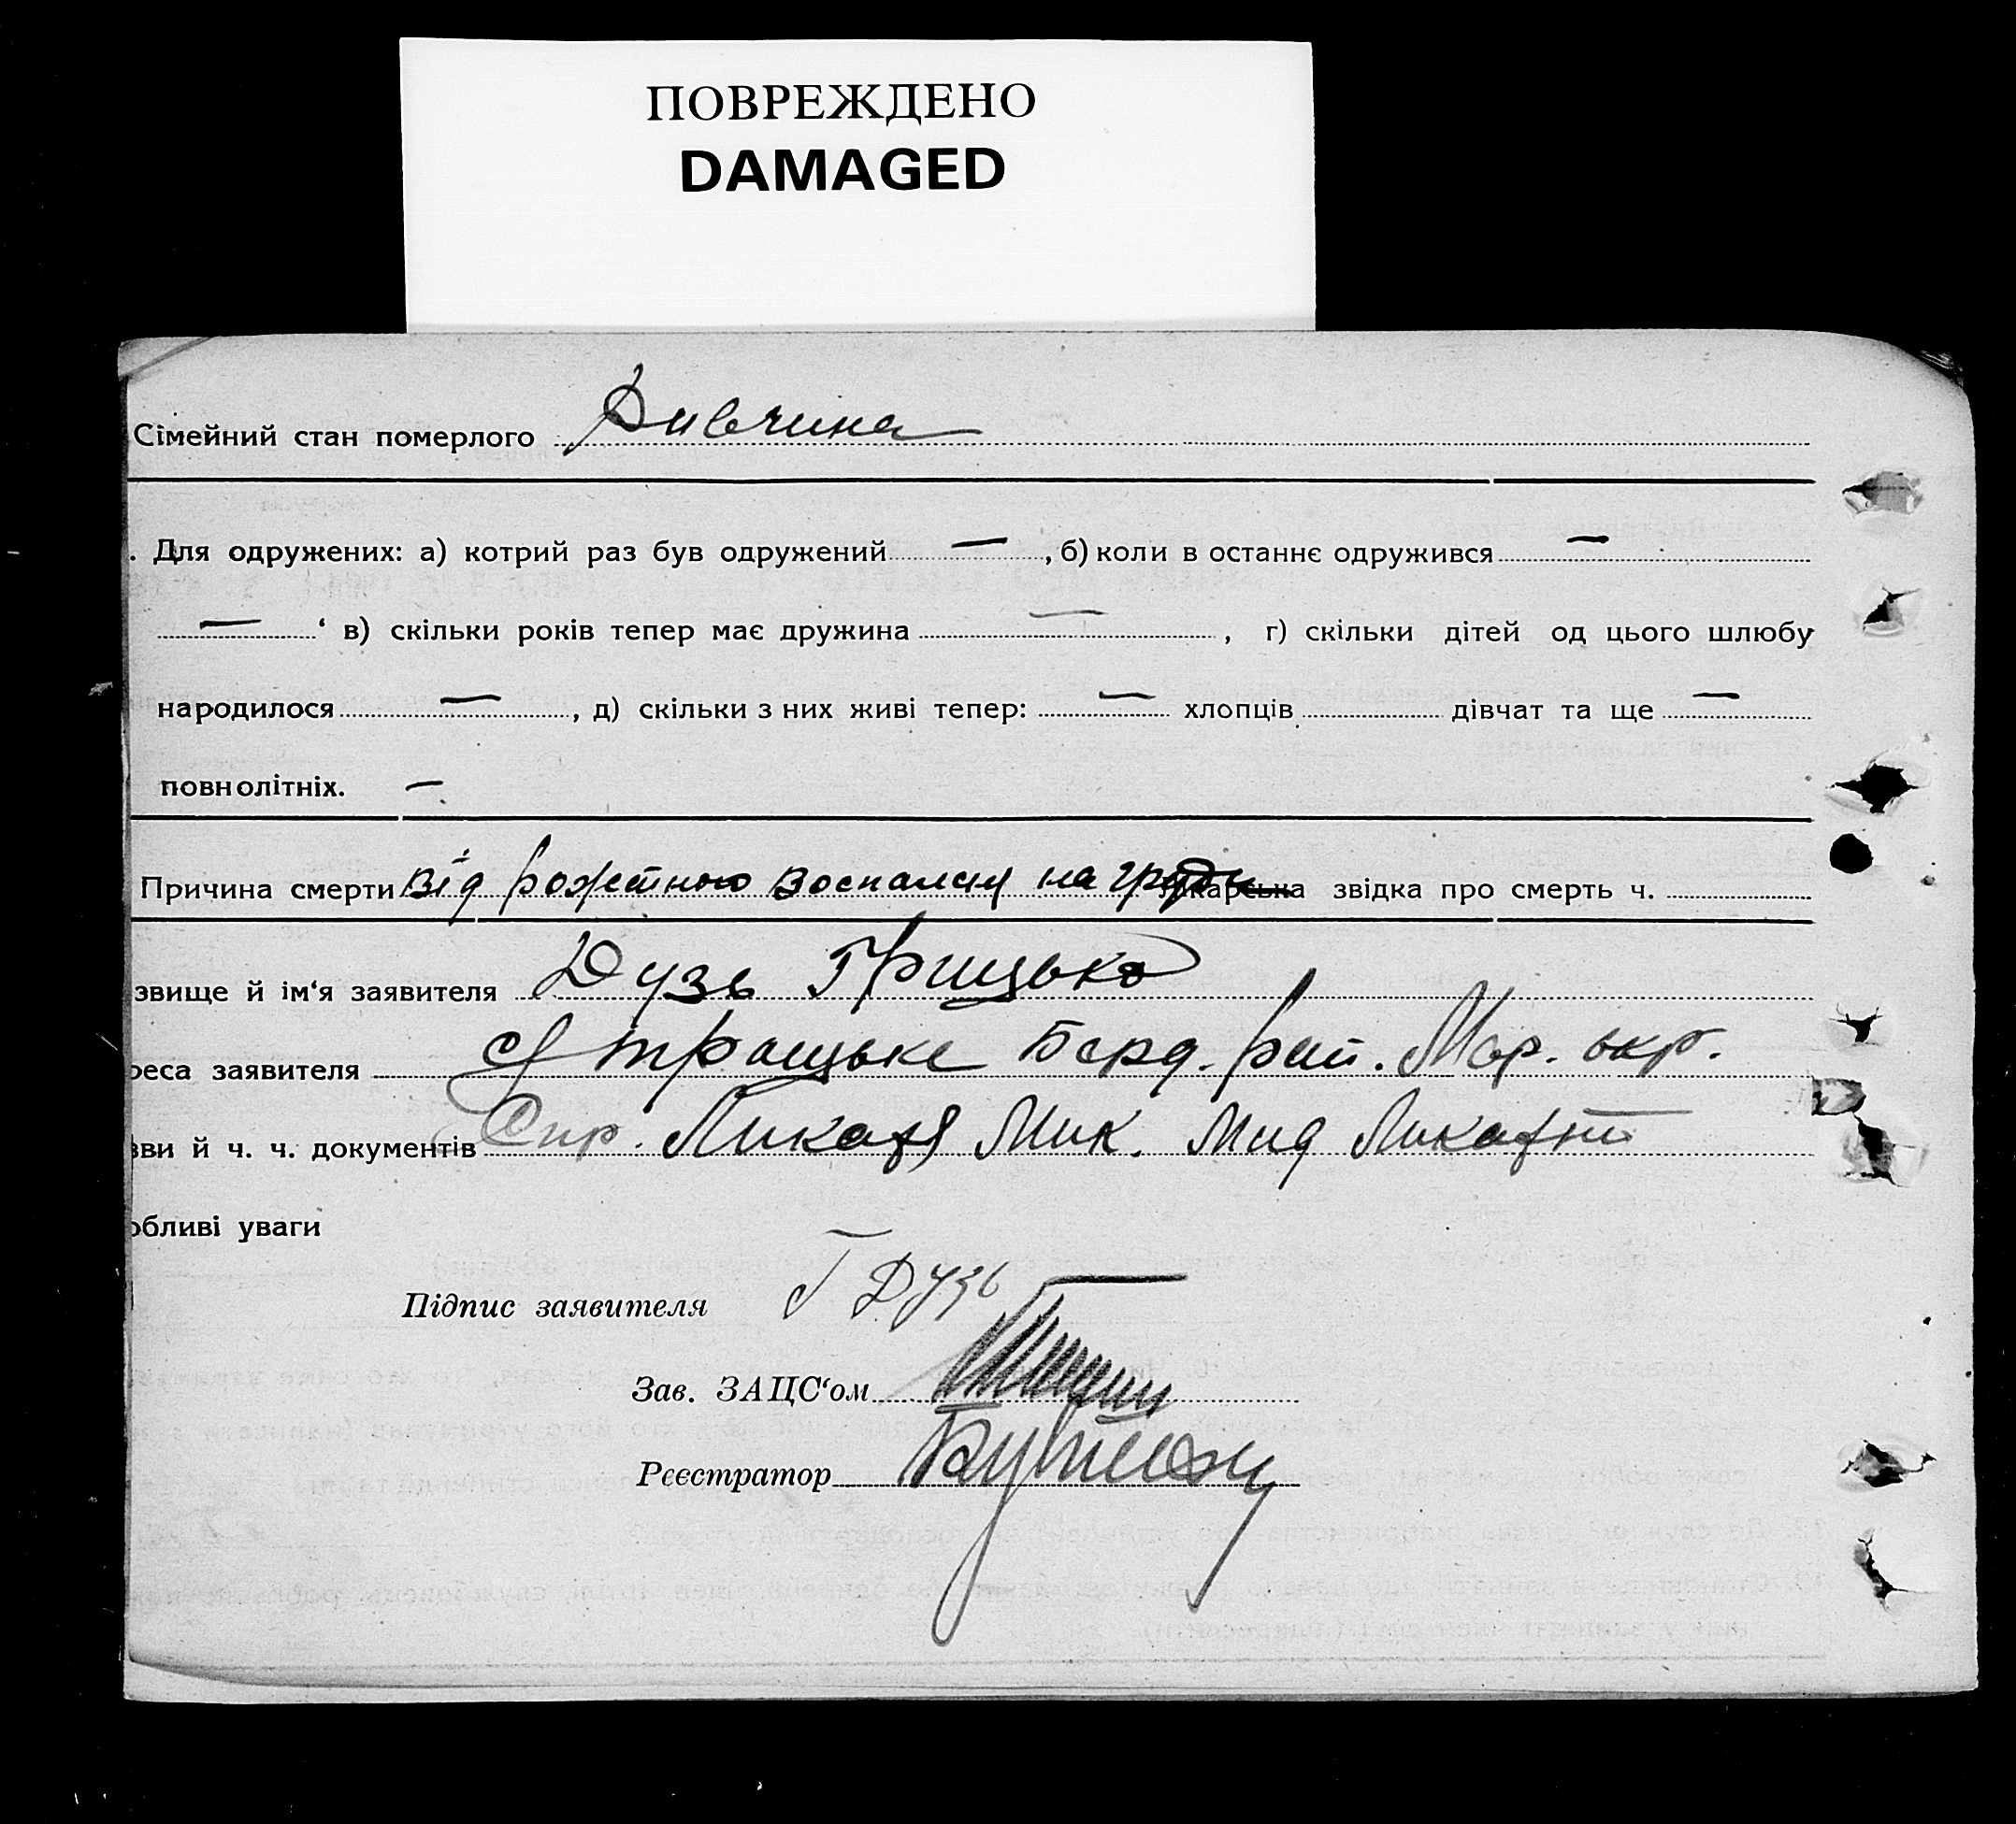 ПОВРЕЖДЕНО
DAMAGED
Сімейний стан померлого Дивчина
. Для одружених: а) котрий раз був одружений — , б) коли в останнє одружився —
— ‘ в) скільки років тепер має дружина — , г) скільки дітей од цього шлюбу
народилося — , д) скільки з них живі тепер: — хлопців дівчат та ще —
повнолітніх. —
Причина смерти Від рожстного воспалення на груди лікарська звідка про смерть ч.
звище й ім‘я заявителя Дузь Грицько
реса заявителя с Троцьке Берд. рай. Мар. окр.
зви й ч. ч. документів Спр. Ликаря Мик. Мид
обливі уваги
Підпис заявителя Г Дузь
Зав. ЗАЦС‘ом
Реєстратор